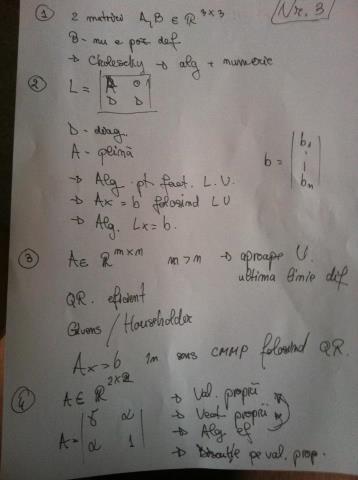 Nr. 3
① 2 matrici A, B ∈ ℝ³ˣ³
B - nu e poz def
→ Cholesky → alg + numeric
② L = | A 0 |
| D D |
D - diag.
A - plină
b = | b₁
⋮
bₙ |
→ Alg pt fact. L.U.
→ Ax = b folosind LU
→ Alg. Lx = b.
③ A ∈ ℝᵐˣⁿ m > n → aproape U.
ultima linie dif
QR. eficient
Givens / Householder
Ax = b în sens CMMP folosind QR.
④ A ∈ ℝ²ˣ² → Val. proprii
→ Vect proprii
A = | 5 α |
| α 1 |
→ Alg ef
→ Discuție pe val. prop.